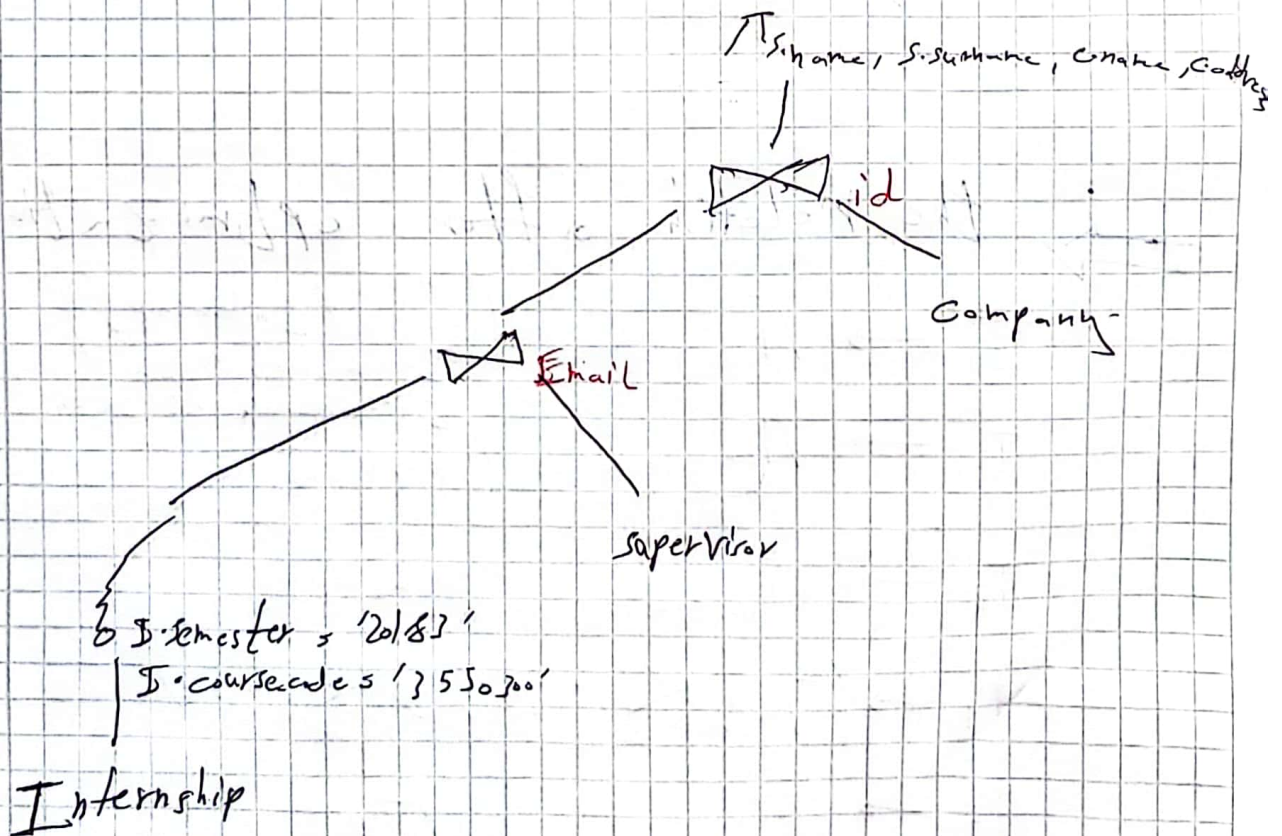 π s.name, s.surname, c.name, c.address
⋈ id
Company
⋈ Email
supervisor
σ I.semester = '20183'
I.coursecode = '3550300'
Internship